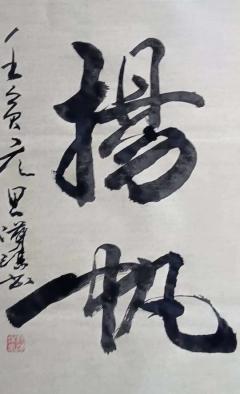 揚帆
壬寅元旦